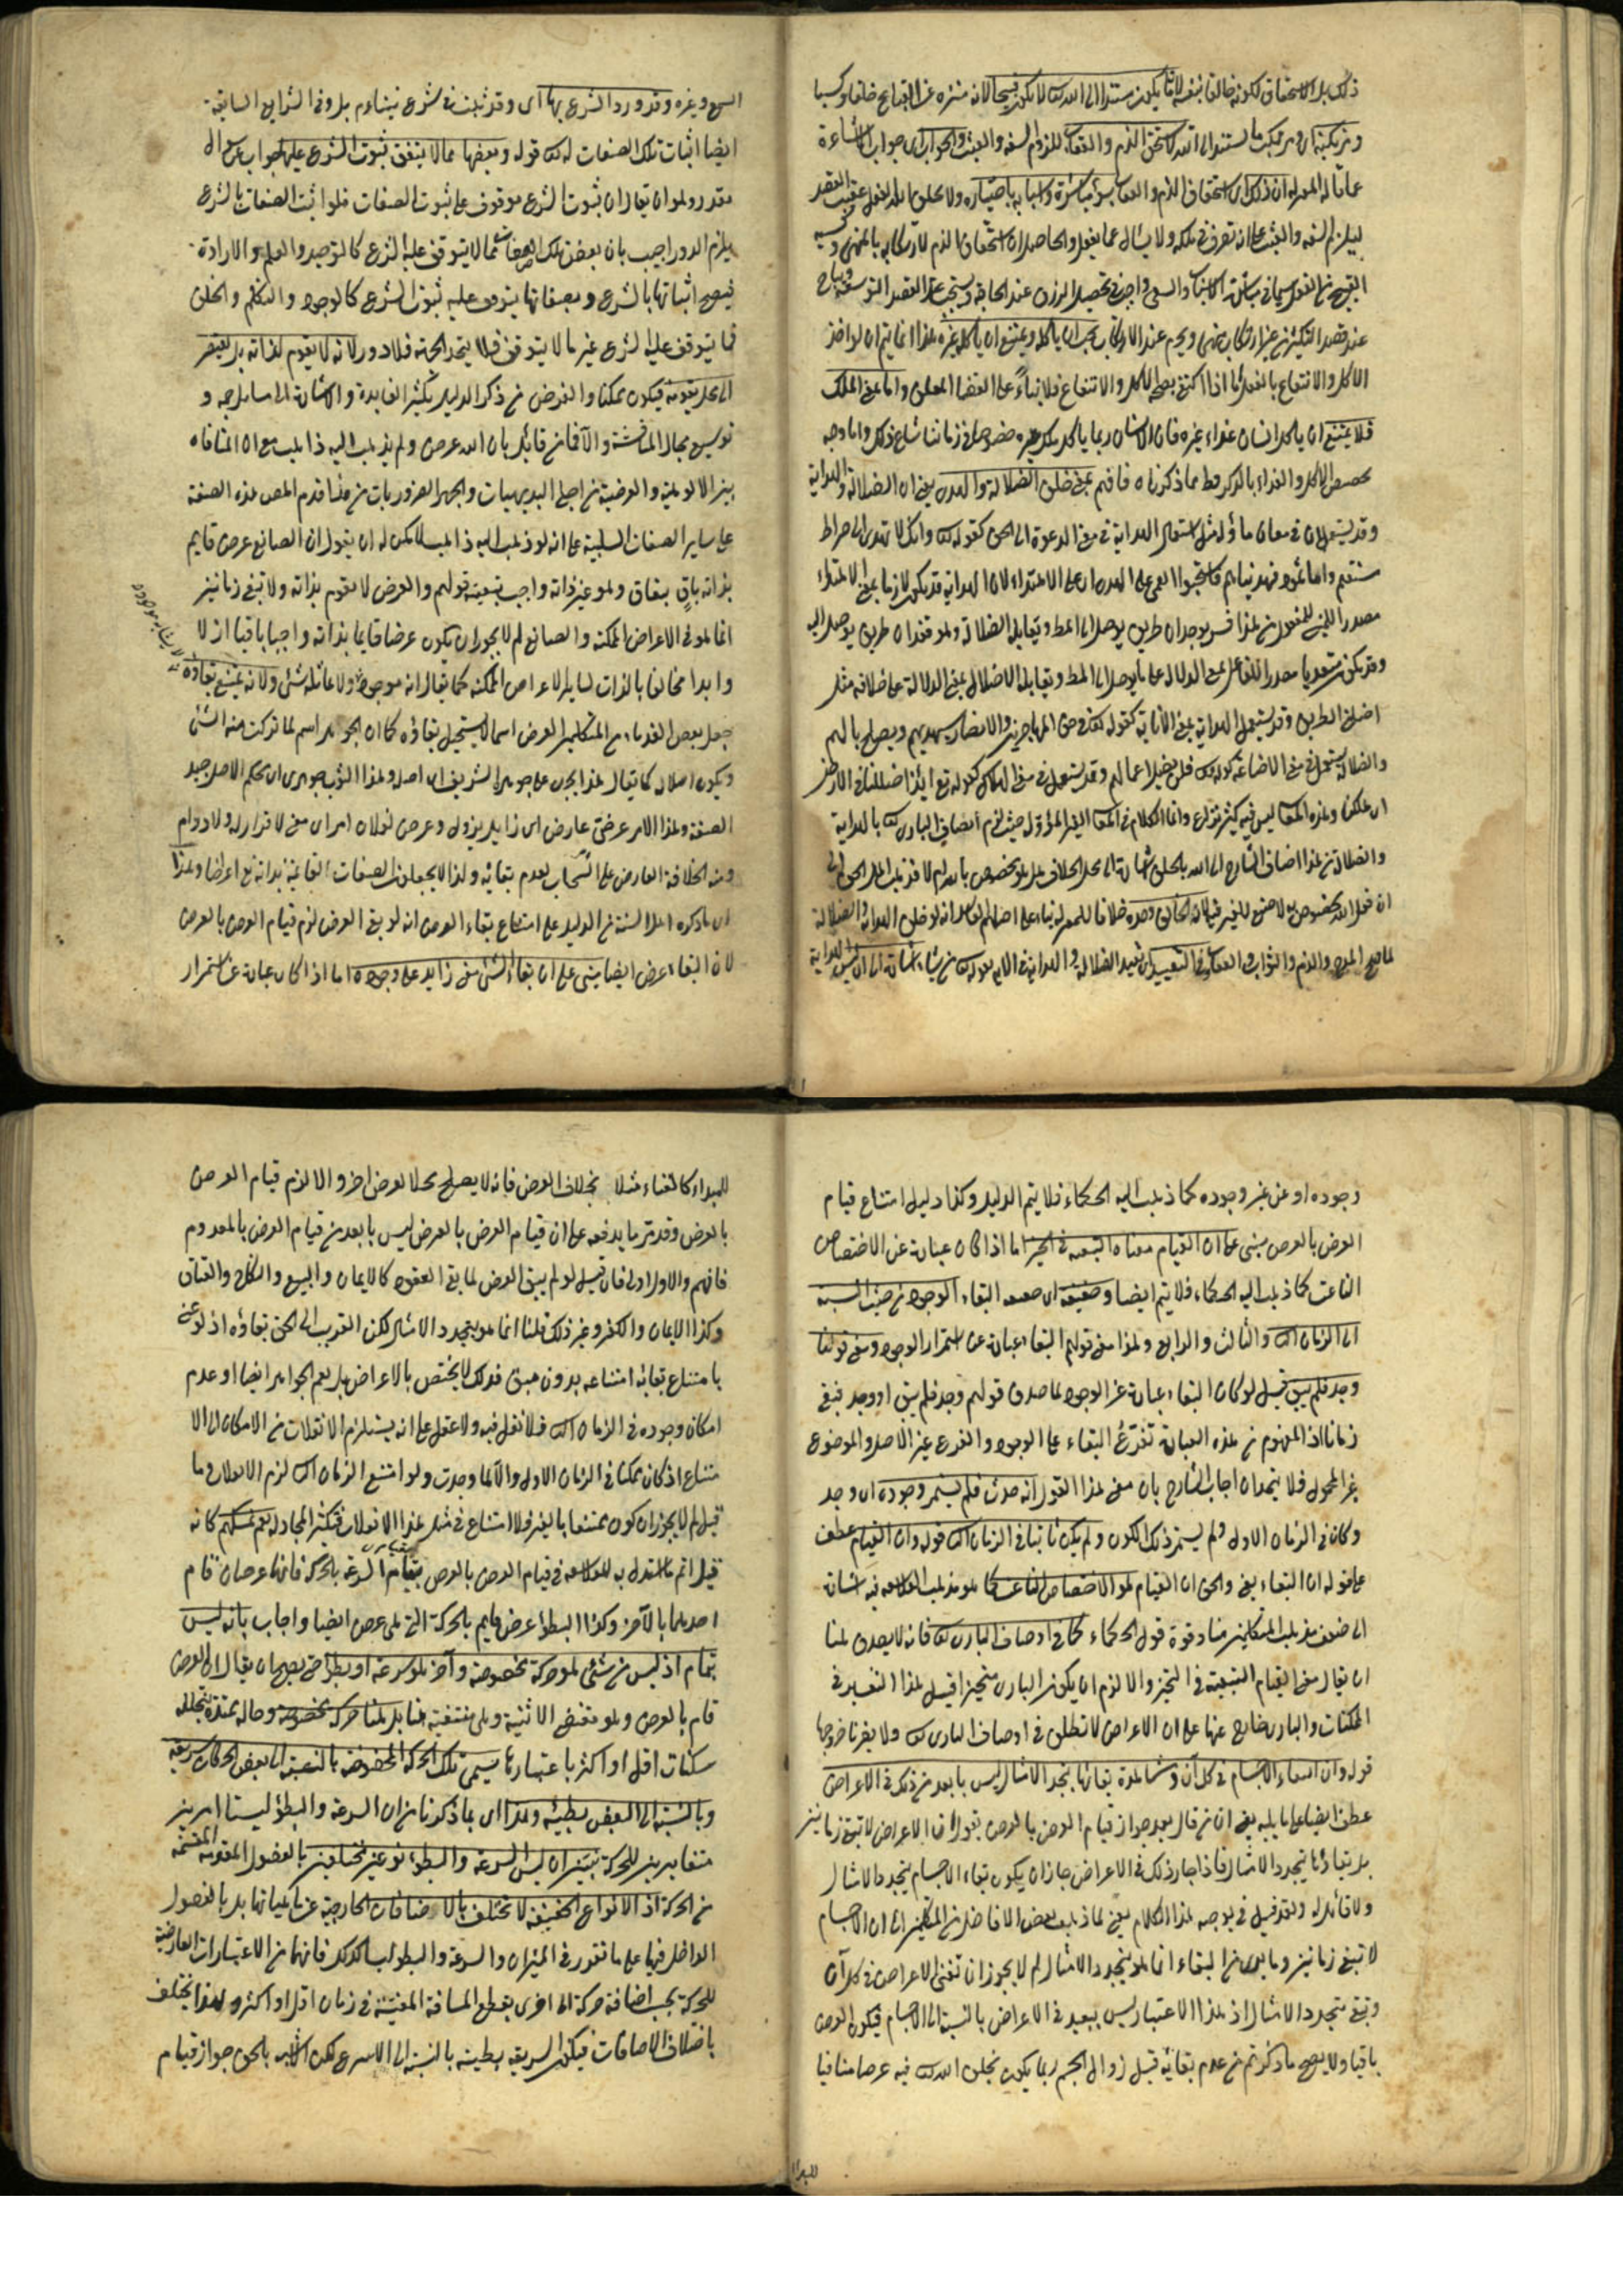 ذلك بل الاستحقاق لكونه خالقا بنفسه لا يكون مستندا الى الله لا يكون قبيحا لانه منزه عن القبايح خلقا وكسبا
ومرتكبه استحق الذم والعقاب للزوم السفه والعبث والجواب اى جواب الاشاعرة
عما قاله المعتزلة ان ذلك اى استحقاق الذم والعقاب بسوء مباشرة اسبابه باختياره ولا بخلق الله الفعل عقيب القصد
ليلزم السفه والعبث على انه تصرف فى ملكه ولا يسأل عما يفعل والحاصل ان استحقاق الذم لارتكابه بالمنهى وكسبه
القبيح من الفعل والسعى واجب فى تحصيل الرزق عند الحاجة ويستحب عند القصد التوسعة ويباح
عند قصد التكثير من غير ارتكاب منهى ويحرم عند الارتكاب يجب ان يأكله ويمتنع ان يأكله غيره هذا انما يتم ان لو اخذ
الاكل والانتفاع بالفعل اما اذا اكتفى بصحة الاكل والانتفاع فلا بناء على القضاء المعلق واما بمعنى الملك
فلا يمتنع ان يأكل انسان غذاء غيره فان الانسان ربما يأكل ملك غيره خصوصا فى زماننا شاع ذلك واما وجه
تخصيص الاكل والغذاء بالذكر فقط مما ذكرناه فافهم بمعنى خلق الضلالة والهدى يعنى ان الضلالة والهداية
وقد يستعملان فى معان مأولة مثل استعمال الهداية فى معنى الدعوة الى الحق كقوله تعالى وانك لتهدى الى صراط
مستقيم واما ثمود فهديناهم فاستحبوا العمى على الهدى اى على الاهتداء لان الهداية قد يكون لازما بمعنى الاهتداء
مصدر المبنى للمفعول من هذا فسر بوجدان طريق يوصل الى المط ويقابله الضلالة وهو فقدان طريق يوصل اليه
وقد يكون متعديا مصدر للفاعل بمعنى الدلالة على ما يوصل الى المط ويقابله الاضلال بمعنى الدلالة على خلافه مثل
اضلنى الطريق وقد يستعمل الهداية بمعنى الاثابة كقوله تعالى فى حق المهاجرين والانصار سيهديهم ويصلح بالهم
والضلالة يستعمل فى معنى الاضاعة كقوله تعالى فلن يضل اعمالهم وقد يستعمل فى معنى الهلاك كقوله تع ائذا ضللنا فى الارض
اى هلكنا وهذه المعانى ليس فيه كثير نزاع وانما الكلام فى المعانى الغير المؤولة حيث لزم اتصاف البارى تعالى بالهداية
والضلالة من هذا اضاف الشارح الى الله بالخلق اشارة الى محل الخلاف هل هو مخصوص بالله ام لا فذهب اهل الحق الى
ان فعل الله مخصوص به لا صنع للغير فيها لانه الخالق وحده خلافا للمعتزلة بناء على اصلهم الفاسد انه لو خلق الهداية والضلالة
لما صح المدح والذم والثواب والعقاب وفى التقييد اى تقييد الضلالة والهداية فى الآية بقوله من يشاء اشارة الى ان ليس الهداية
السمع وغيره وقد ورد الشرع بها اى وقد ثبت فى شرع نبيناءم بل وفى الشرايع السابقة
ايضا اثبات تلك الصفات له تعالى قوله وبعضها مما لا يتوقف ثبوت الشرع عليها جواب سؤال
مقدر وهو ان يقال ان ثبوت الشرع موقوف على ثبوت الصفات فلو اثبت الصفات بالشرع
يلزم الدور اجيب بان بعض تلك الصفات مما لا يتوقف عليه الشرع كالتوحيد والعلم والارادة
فيصح اثباتها بالشرع وبعضاتها يتوقف عليه ثبوت الشرع كالوجود والتكلم والخلق
فما يتوقف عليه الشرع غير ما لا يتوقف فلا يتحد الجهة فلا دور لانه لا يقوم لذاته بل يفتقر
الى محل يقومه فيكون ممكنا والغرض من ذكر الدليل تكثير الفايدة والاشارة الى مسايل جمة و
توسيع مجال المناقشة والا فما من قائل بان الله عرض ولم يذهب اليه ذاهب مع ان المنافاة
بين الالوهية والعرضية من اجلى البديهيات واجهر الضروريات من هنا قدم المص هذه الصفة
على ساير الصفات السلبية على انه لو ذهب اليه ذاهب لامكن له ان يقول ان الصانع عرض قايم
بذاته باق ببقاق وهو غير ذاته واجب بتبعيته قولهم والعرض لا يقوم بذاته ولا تبقى زمانين
انما هو فى الاعراض الممكنة والصانع لم لا يجوز ان يكون عرضا قايما بذاته واجبا باقيا ازلا
وابدا مخالفا بالذات لساير الاعراض الممكنة كما يقال انه موجود ولا يماثله شئ ولانه يمتنع بقاؤه
جعل بعض القدماء من المتكلمين العرض اسما لا يستحيل بقاؤه كما ان الجوهر اسم لما تركت منه الشئ
ويكون اصلا له كما يقال هذا يجرى على جوهره الشريف اى اصله وهذا الثوب جوهرى اى محكم الاصل جيد
الصنعة وهذا الامر عرضى عارض اى زايل يزول وعرض لفلان امر اى معنى لا قرار له ولا دوام
ومنه الخلافة العارض على السحاب لعدم بقائه ولذا لا يجعلون الصفات القائمة بذاته تع اعراضا وهذا
اى ما ذكره اهل السنة من الدليل على امتناع بقاء العرض انه لو بقى العرض لزم قيام العرض بالعرض
لان البقاء عرض ايضا يبنى على ان بقاء الشئ معنى زايد على وجوده اما اذا كان عبارة عن استمرار
وجوده او عن غير وجوده كما ذهب اليه الحكماء فلا يتم الدليل وكذا دليل امتناع قيام
العرض بالعرض مبنى على ان القيام معناه التبعية فى الحيز اما اذا كان عبارة عن الاختصاص
الناعت كما ذهب اليه الحكماء فلا يتم ايضا وحقيقته اى حقيقة البقاء الوجود من حيث النسبة
الى الزمان الثانى والثالث والرابع وهذا معنى قولهم البقاء عبارة عن استمرار الوجود ومعنى قولنا
وجد فلم يبق قيل لو كان البقاء عبارة عن الوجود لما صدق قولهم وجد فلم يبق او وجد فبقى
زمانا اذ المفهوم من هذه العبارة تفرع البقاء على الوجود والفرع غير الاصل والموضوع
غير المحمول فلا يتحدان اجاب الشارح بان معنى هذا القول انه حدث فلم يستمر وجوده اى وجد
وكان فى الزمان الاول ولم يستمر ذلك الكون ولم يكن ثابتا فى الزمان الثانى قوله وان القيام عطف
على قوله ان البقاء يعنى والحق ان القيام هو الاختصاص الناعت كما هو مذهب الفلاسفة فيه اشارة
الى ضعف مذهب المتكلمين هنا وقوة قول الحكماء كما فى اوصاف البارى تعالى فانه لا يصدق هنا
ان يقال معنى القيام التبعية فى التحيز والا لزم ان يكون البارى متحيزا قيل هذا التفسير فى
الممكنات والبارى خارج عنها على ان الاعراض لا تطلق فى اوصاف البارى تعالى ولا يضرنا خروجها
قوله وان انتفاء الاجسام فى كل آن ومشاهدة بقائها بتجدد الامثال ليس بابعد من ذلك فى الاعراض
عطف ايضا على ما يليه يعنى ان من قال بعدم جواز قيام العرض بالعرض يقول ان الاعراض لا تبقى زمانين
بل بقاؤها بتجدد الامثال فاذا جاز ذلك فى الاعراض جاز ان يكون بقاء الاجسام بتجدد الامثال
ولا قائل له ولقد قيل فى توجيه هذا الكلام يعنى لما ذهب بعض الافاضل من المتكلمين الى ان الاجسام
لا تبقى زمانين وما يرى من البقاء انما هو بتجدد الامثال لم لا يجوز ان تفنى الاعراض فى كل آن
وتبقى بتجدد الامثال اذ هذا الاعتبار ليس ببعيد فى الاعراض بالنسبة الى الاجسام فيكون العرض
باقيا ولا يصح ما ذكرتم من عدم بقائه قبل زوال الجسم ربما يكون بخلق الله تعالى فيه عرضا منافيا
للبدا
للبداء كالفناء مثلا بخلاف العرض فانه لا يصلح محلا لعرض اخر والا لزم قيام العرض
بالعرض وقد مر ما يدفعه على ان قيام العرض بالعرض ليس بابعد من قيام العرض بالمعدوم
فافهم والاول اولى فان قيل لو لم يبق العرض لما بقى العقود كالايمان والبيع والنكاح والعتاق
وكذا الايمان والكفر وغير ذلك قلنا انما هو بتجدد الامثال لكن القريب الى الحق بقاؤه اذ لو عنى
بامتناع بقائه امتناعه بدون مبق فذلك لا يختص بالاعراض بل يعم الجواهر ايضا او عدم
امكان وجوده فى الزمان الثانى فلا نقل فيه ولا عقل على انه يستلزم الانقلاب من الامكان الى الا
متناع اذ كان ممكنا فى الزمان الاول والا لما وجدت ولو امتنع الزمان الثانى لزم الانقلاب وما
قيل لم لا يجوز ان كون ممتنعا بالغير فلا امتناع فى مثل هذا الانقلاب فتكثير المجادلة نعم تمسكهم كانه
قيل انتم ما استدل به الفلاسفة فى قيام العرض بالعرض بقيام السرعة بالحركة فانها عرضان قام
احدهما بالآخر وكذا البطؤ عرض قايم بالحركة التى هى عرض ايضا واجاب بانه ليس
بتمام اذ ليس من شئ هو حركة مخصوصة وآخر هو سرعة او بطؤ حتى يصح ان يقال ان العرض
قام بالعرض وهو مقتضى الاثنينية وهى منتفية هنا بل هنا حركة مخصوصة وحالة ممتدة يتخلله
سكنات اقل او اكثر باعتبارها يسمى تلك الحركة المخصوصة بالنسبة الى بعض الحركات سريعة
وبالنسبة الى البعض بطيئة وهذا اى بما ذكرنا من ان السرعة والبطؤ ليستا امرين
متغايرين للحركة تبين ان ليس السرعة والبطؤ نوعين مختلفين بالفصول المقومة المقسمة
من الحركة اذ الانواع الحقيقية لا تختلف بالاضافات الخارجية عن ماهياتها بل بالفصول
الداخل فيها على ما تقرر فى الميزان والسرعة والبطؤ ليسا كذلك فانهما من الاعتبارات العارضة
للحركة بحسب اضافة حركة الى اخرى بقطع المسافة المعينة فى زمان اقل او اكثر ولهذا يختلف
باختلاف الاضافات فيكون السريعة بطيئة بالنسبة الى الاسرع لكن الاشبه بالحق جواز قيام